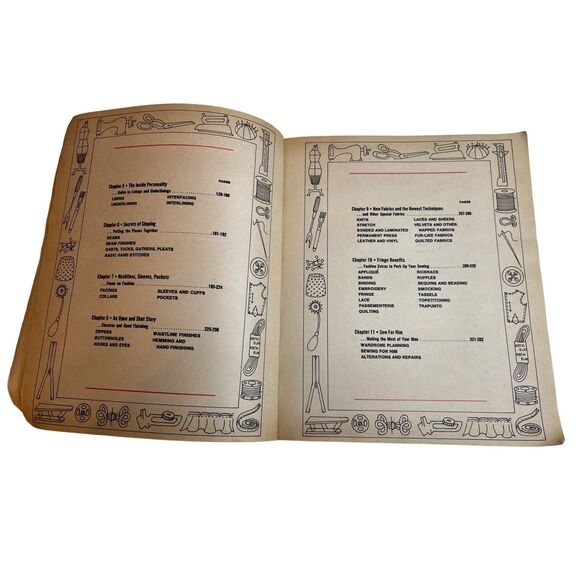 PAGES
Chapter 5 • The Inside Personality
. . . Guide to Linings and Underlinings
LINING INTERFACING
UNDERLINING INTERLINING
Chapter 6 • Secrets of Shaping
. . . Putting the Pieces Together
SEAMS
SEAM FINISHES
DARTS, TUCKS, GATHERS, PLEATS
BASIC HAND STITCHES
Chapter 7 • Necklines, Sleeves, Pockets
. . . Focus on Fashion
FACINGS SLEEVES AND CUFFS
COLLARS POCKETS
Chapter 8 • An Open and Shut Story
. . . Closures and Hand Finishing
ZIPPERS WAISTLINE FINISHES
BUTTONHOLES HEMMING AND
HOOKS AND EYES HAND FINISHING
PAGES
Chapter 9 • New Fabrics and the Newest Techniques
. . . and Other Special Fabrics
KNITS LACES AND SHEERS
STRETCH VELVETS AND OTHER
BONDED AND LAMINATED NAPPED FABRICS
PERMANENT PRESS FUR-LIKE FABRICS
LEATHER AND VINYL QUILTED FABRICS
Chapter 10 • Fringe Benefits
. . . Fashion Extras to Perk Up Your Sewing
APPLIQUÉ RICKRACK
BANDS RUFFLES
BINDING SEQUINS AND BEADING
EMBROIDERY SMOCKING
FRINGE TASSELS
LACE TOPSTITCHING
PASSEMENTERIE TRAPUNTO
QUILTING
Chapter 11 • Sew For Him
. . . Making the Most of Your Man
WARDROBE PLANNING
SEWING FOR HIM
ALTERATIONS AND REPAIRS